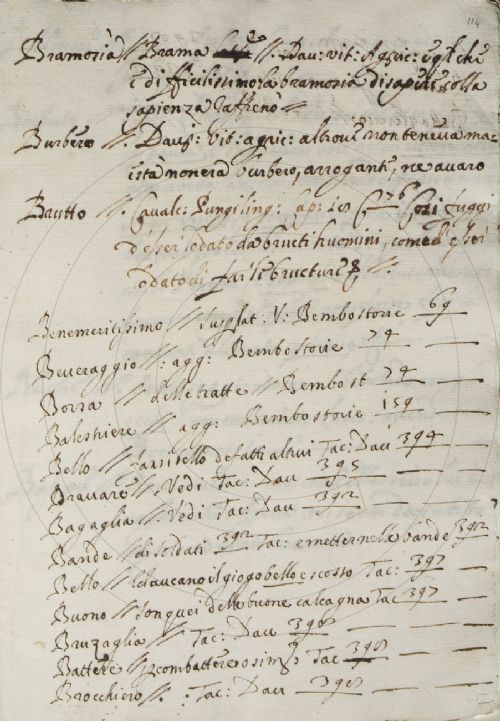 114
Bramosia // Brama //. Dav: vit: Agric: egli che
è difficilissimo: la bramosia di sapere colla
sapienza raffrenò //
Burbero //. Dav: Vit: agric: altrove non teneva ma:
està non era burbero, arrogante, ne avaro
Brutto //. Cavalc: Pungiling: cap: 28 76 fuggir
d'esser lodato da brutti huomini, come d'esser
lodato di far le brutture //.
Benemeritissimo // V: Bembo storie 69
Beveraggio //: agg: Bembo storie 74
Borra // delle tratte // Bembo st 74
Balestriere // agg: Bembo storie 159
Bello // farsi bello de fatti altrui Tac: Dav 394
Bravare //. Vedi Tac: Dav 395
Bagaglia //: Vedi Tac: Dav 392
Bande // di soldati 392 Tac: e metter nelle bande 392
Bello // il giogo bello e scosso Tac: 397
Buono // delle buone calcagna Tac 397
Bruzaglia //. Tac: Dav 398
Battere // combattere Tac 398
Brocchiero //. Tac: Dav